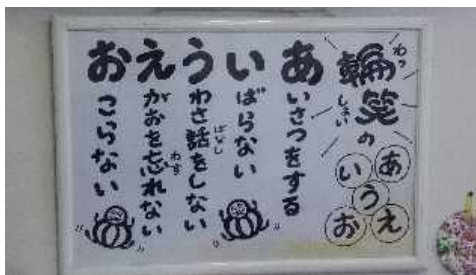 輪笑の
わっしょい
あいうえお
あいさつをする
いばらない
うわさ話をしない
ばなし
えがおを忘れない
わす
おこらない